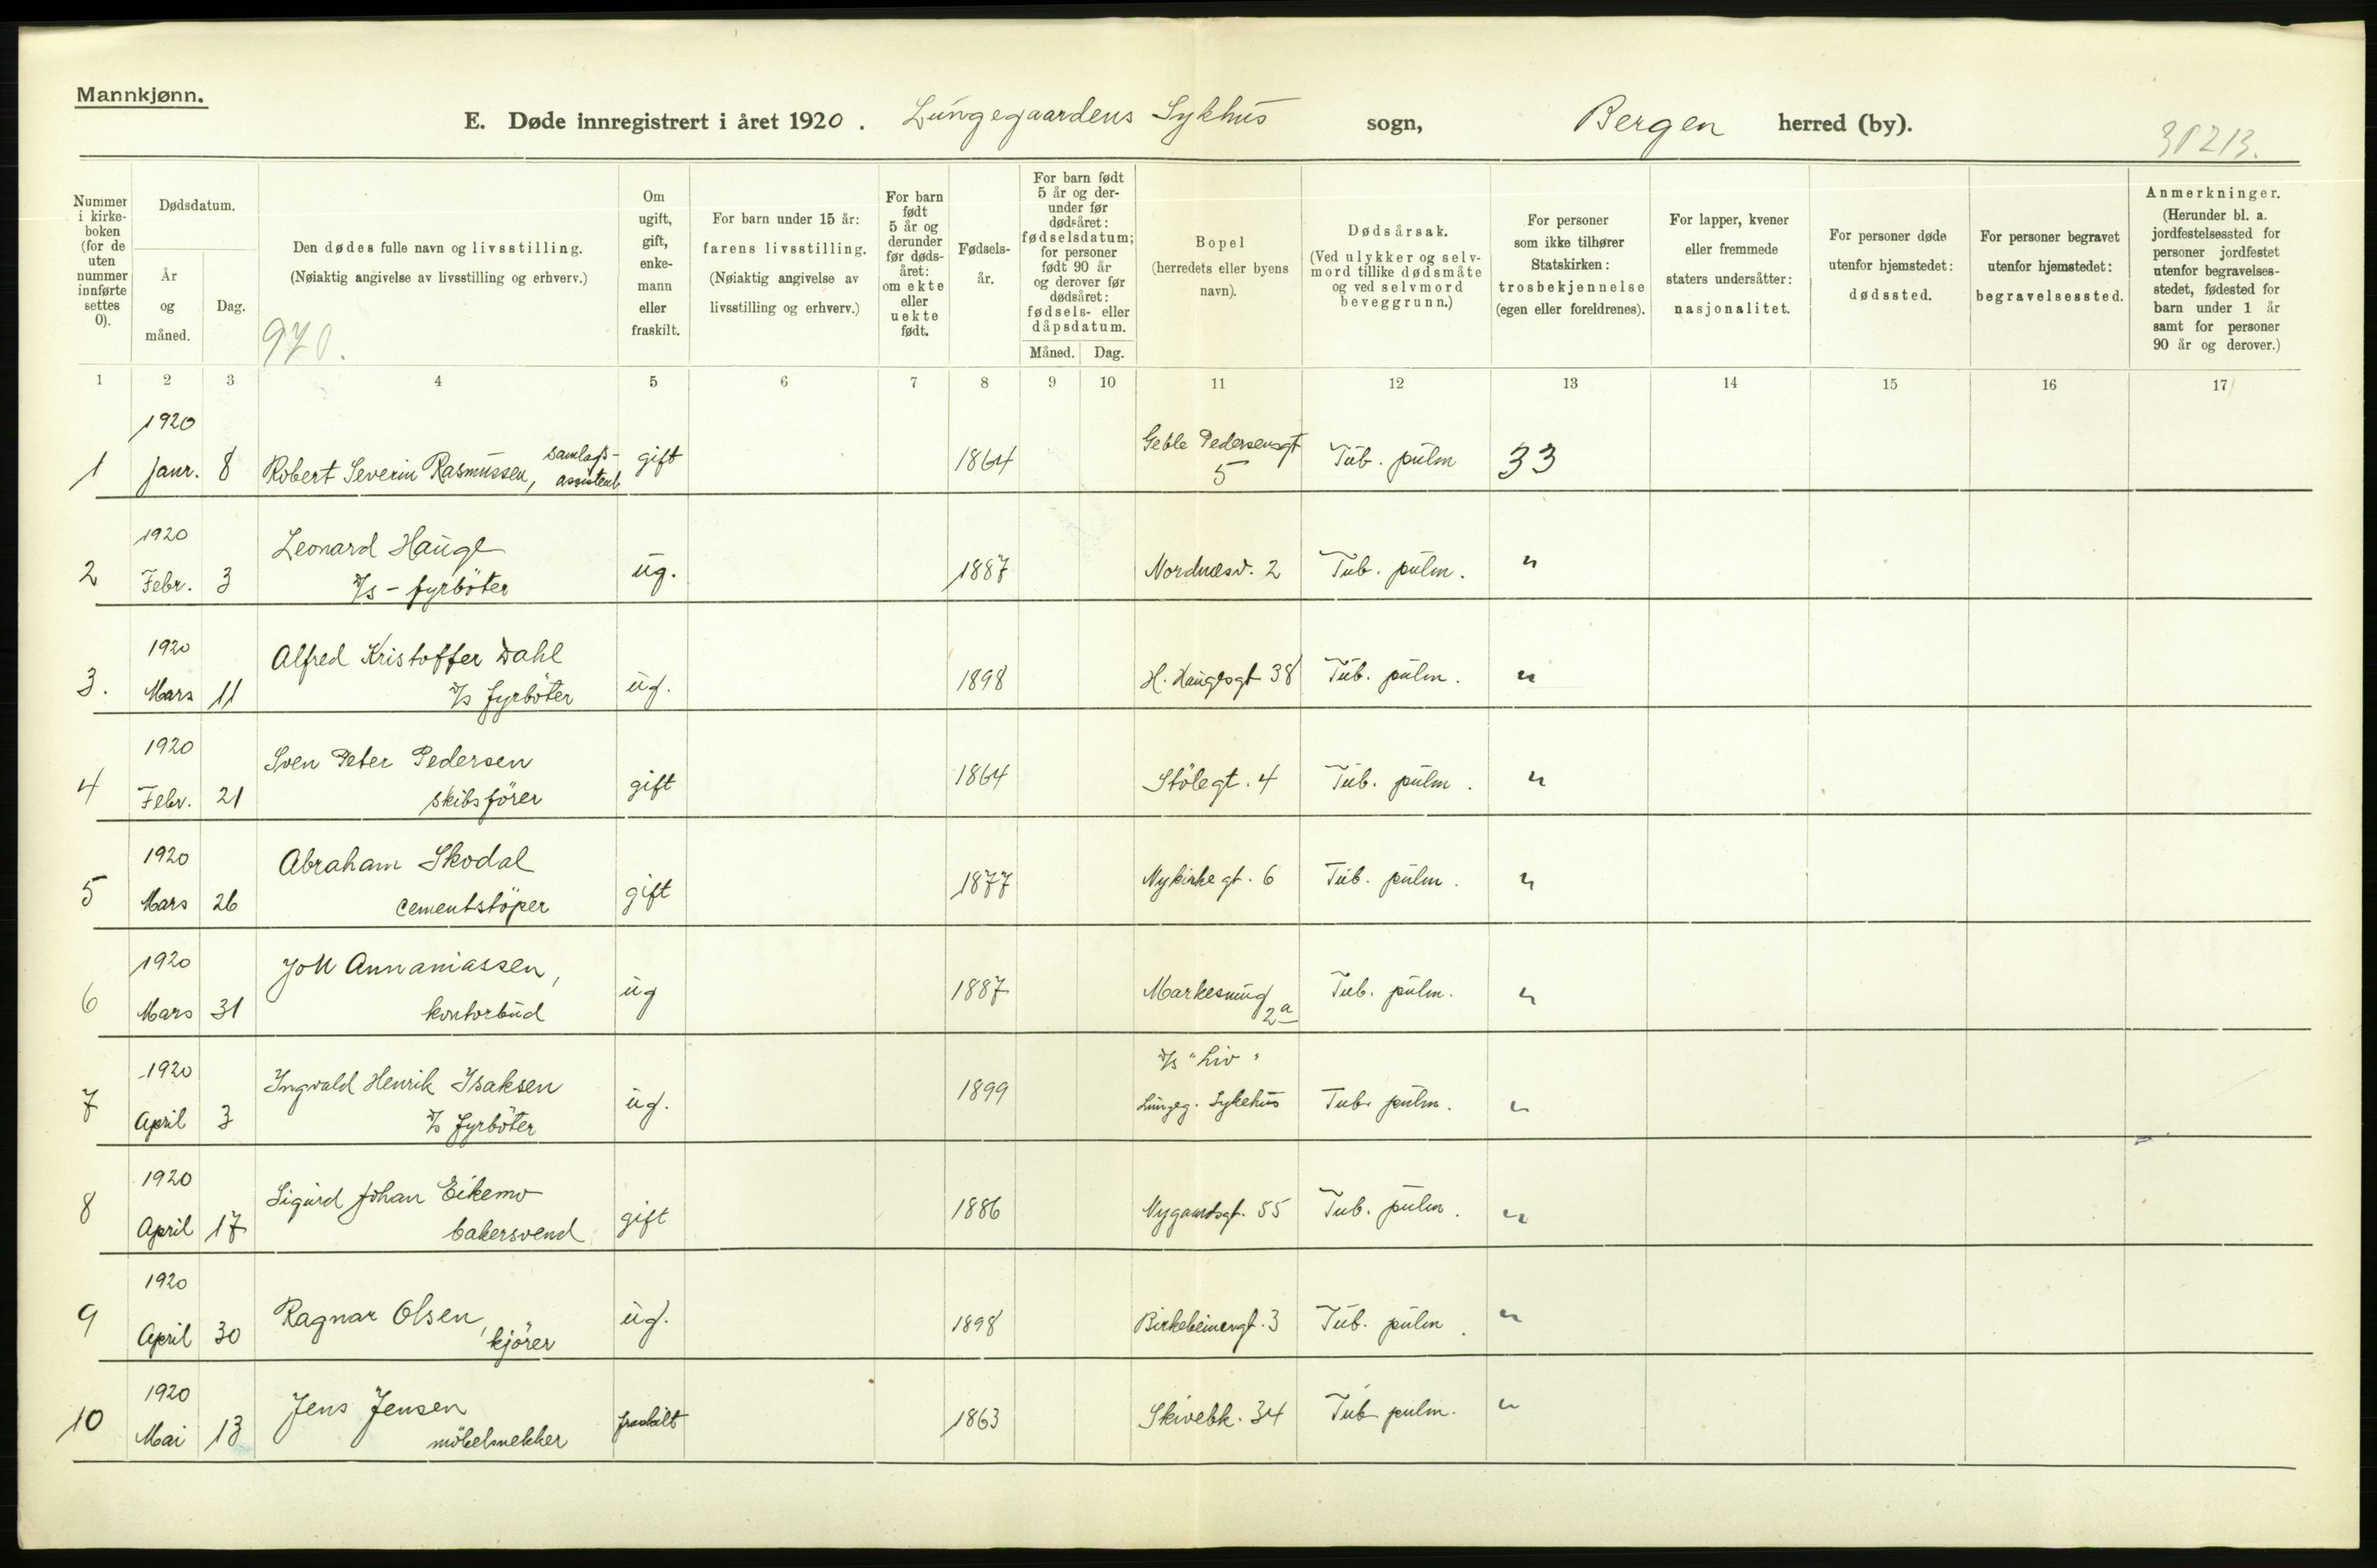 Mannkjønn.
E. Døde innregistrert i året 1920. Lungegaardens Sykhus sogn, Bergen herred (by).
30213.
Nummer i kirke- boken (for de uten nummer innførte settes 0).
Dødsdatum.
År og måned.
Dag.
Den dødes fulle navn og livsstilling.
(Nøiaktig angivelse av livsstilling og erhverv.)
970.
Om ugift, gift, enke- mann eller fraskilt.
For barn under 15 år: farens livsstilling. (Nøiaktig angivelse av livsstilling og erhverv.)
For barn født 5 år og derunder før døds- året: om ekte eller uekte født.
Fødsels- år.
For barn født 5 år og der- under før dødsåret: fødselsdatum; for personer født 90 år og derover før dødsåret: fødsels- eller dåpsdatum.
Måned. Dag.
Bopel (herredets eller byens navn).
Dødsårsak. (Ved ulykker og selv- mord tillike dødsmåte og ved selvmord beveggrunn.)
For personer som ikke tilhører Statskirken: trosbekjennelse (egen eller foreldrenes).
For lapper, kvener eller fremmede staters undersåtter: nasjonalitet.
For personer døde utenfor hjemstedet: dødssted.
For personer begravet utenfor hjemstedet: begravelsessted.
Anmerkninger. (Herunder bl. a. jordfestelsessted for personer jordfestet utenfor begravelses- stedet, fødested for barn under 1 år samt for personer 90 år og derover.)
1 2 3 4 5 6 7 8 9 10 11 12 13 14 15 16 17
1 1920 Janr. 8 Robert Severin Rasmussen, samlags- assistent gift 1864 Geble Pedersensgt 5 Tub. pulm 33
2 1920 Febr. 3 Leonard Hauge D/s - fyrböter ug. 1887 Nordnæsv. 2 Tub. pulm. "
3. 1920 Mars 11 Alfred Kristoffer Dahl D/s fyrböter ug. 1898 H. Haugesgt 38 Tub. pulm. "
4 1920 Febr. 21 Sven Peter Pedersen skibsförer gift 1864 Stölegt. 4 Tub. pulm. "
5 1920 Mars 26 Abraham Skodal cementstöper gift 1877 Nykirkegt. 6 Tub. pulm. "
6 1920 Mars 31 Joh Annaniassen, kontorbud ug 1887 Markesmug 2a Tub. pulm. "
7 1920 April 3 Ingvald Henrik Isaksen D/s fyrböter ug. 1899 D/s "Liv" Lungeg. Sykehus Tub. pulm. "
8 1920 April 17 Sigurd Johan Eikemo bakersvend gift 1886 Nygaardsgt. 55 Tub. pulm. "
9 1920 April 30 Ragnar Olsen, kjörer ug. 1898 Birkebeinergt. 3 Tub. pulm. "
10 1920 Mai 13 Jens Jensen möbelsnekker fraskilt 1863 Skivebk. 34 Tub pulm. "